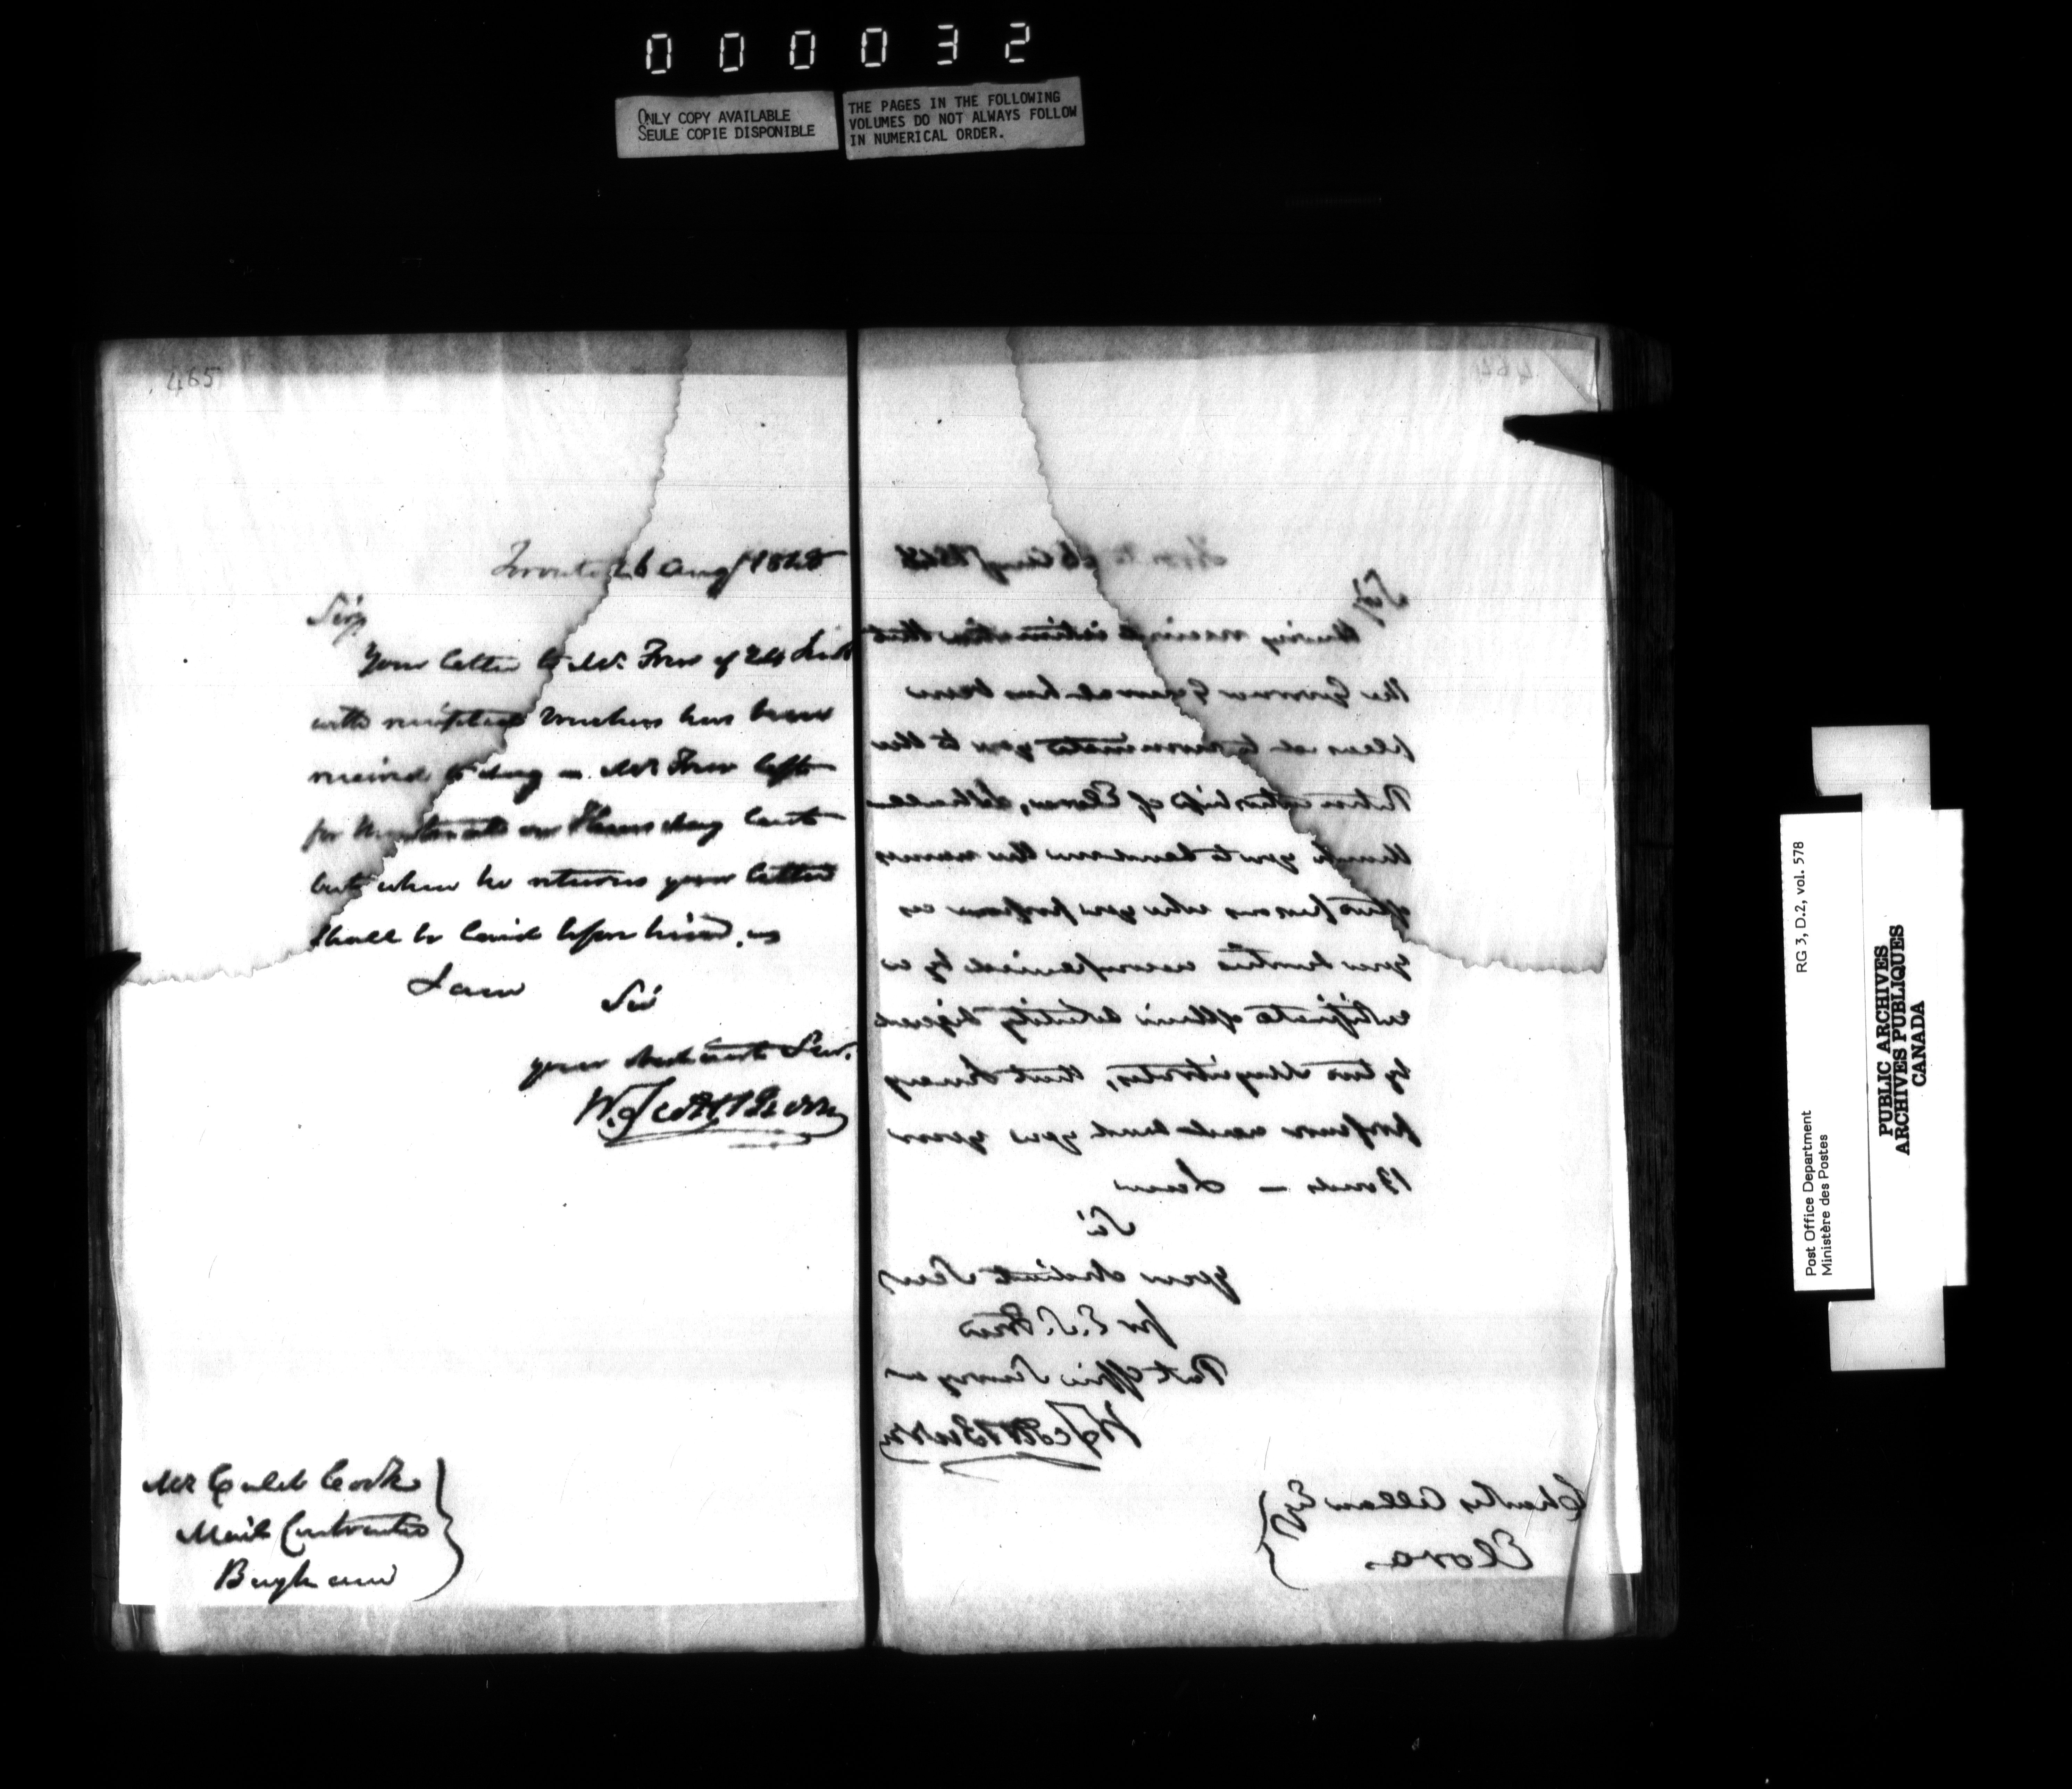 000032
ONLY COPY AVAILABLE
SEULE COPIE DISPONIBLE
THE PAGES IN THE FOLLOWING
VOLUMES DO NOT ALWAYS FOLLOW
IN NUMERICAL ORDER.
465
Toronto 26 Augt 1848
Sir,
Your letter to Mr. Frew of 24 Inst
with receipted vouchers has been
received to day as Mr Frew left
for Montreal on Thursday last
but when he returns your letter
shall be laid before him.
I am Sir
your obedient Serv.
W. Scott Burn
Mr Caleb Cook
Mail Contractor
464
Toronto 26 Augt 1848
Sir,
Having received intimation that
the Governor General has been
pleased to nominate you to the
of Elora, I shall
thank you to send me the names
of two persons who you propose as
your sureties accompanied by a
certificate of their ability signed
by two Magistrates, that I may
prepare and send you your
Bonds — I am
Sir
your obedient Serv
for E. S. Frew
Post Office Surveyor
W. Scott Burn
Charles Allan Esq
Elora.
Post Office Department
Ministère des Postes
RG 3, D.2, vol. 578
PUBLIC ARCHIVES
ARCHIVES PUBLIQUES
CANADA